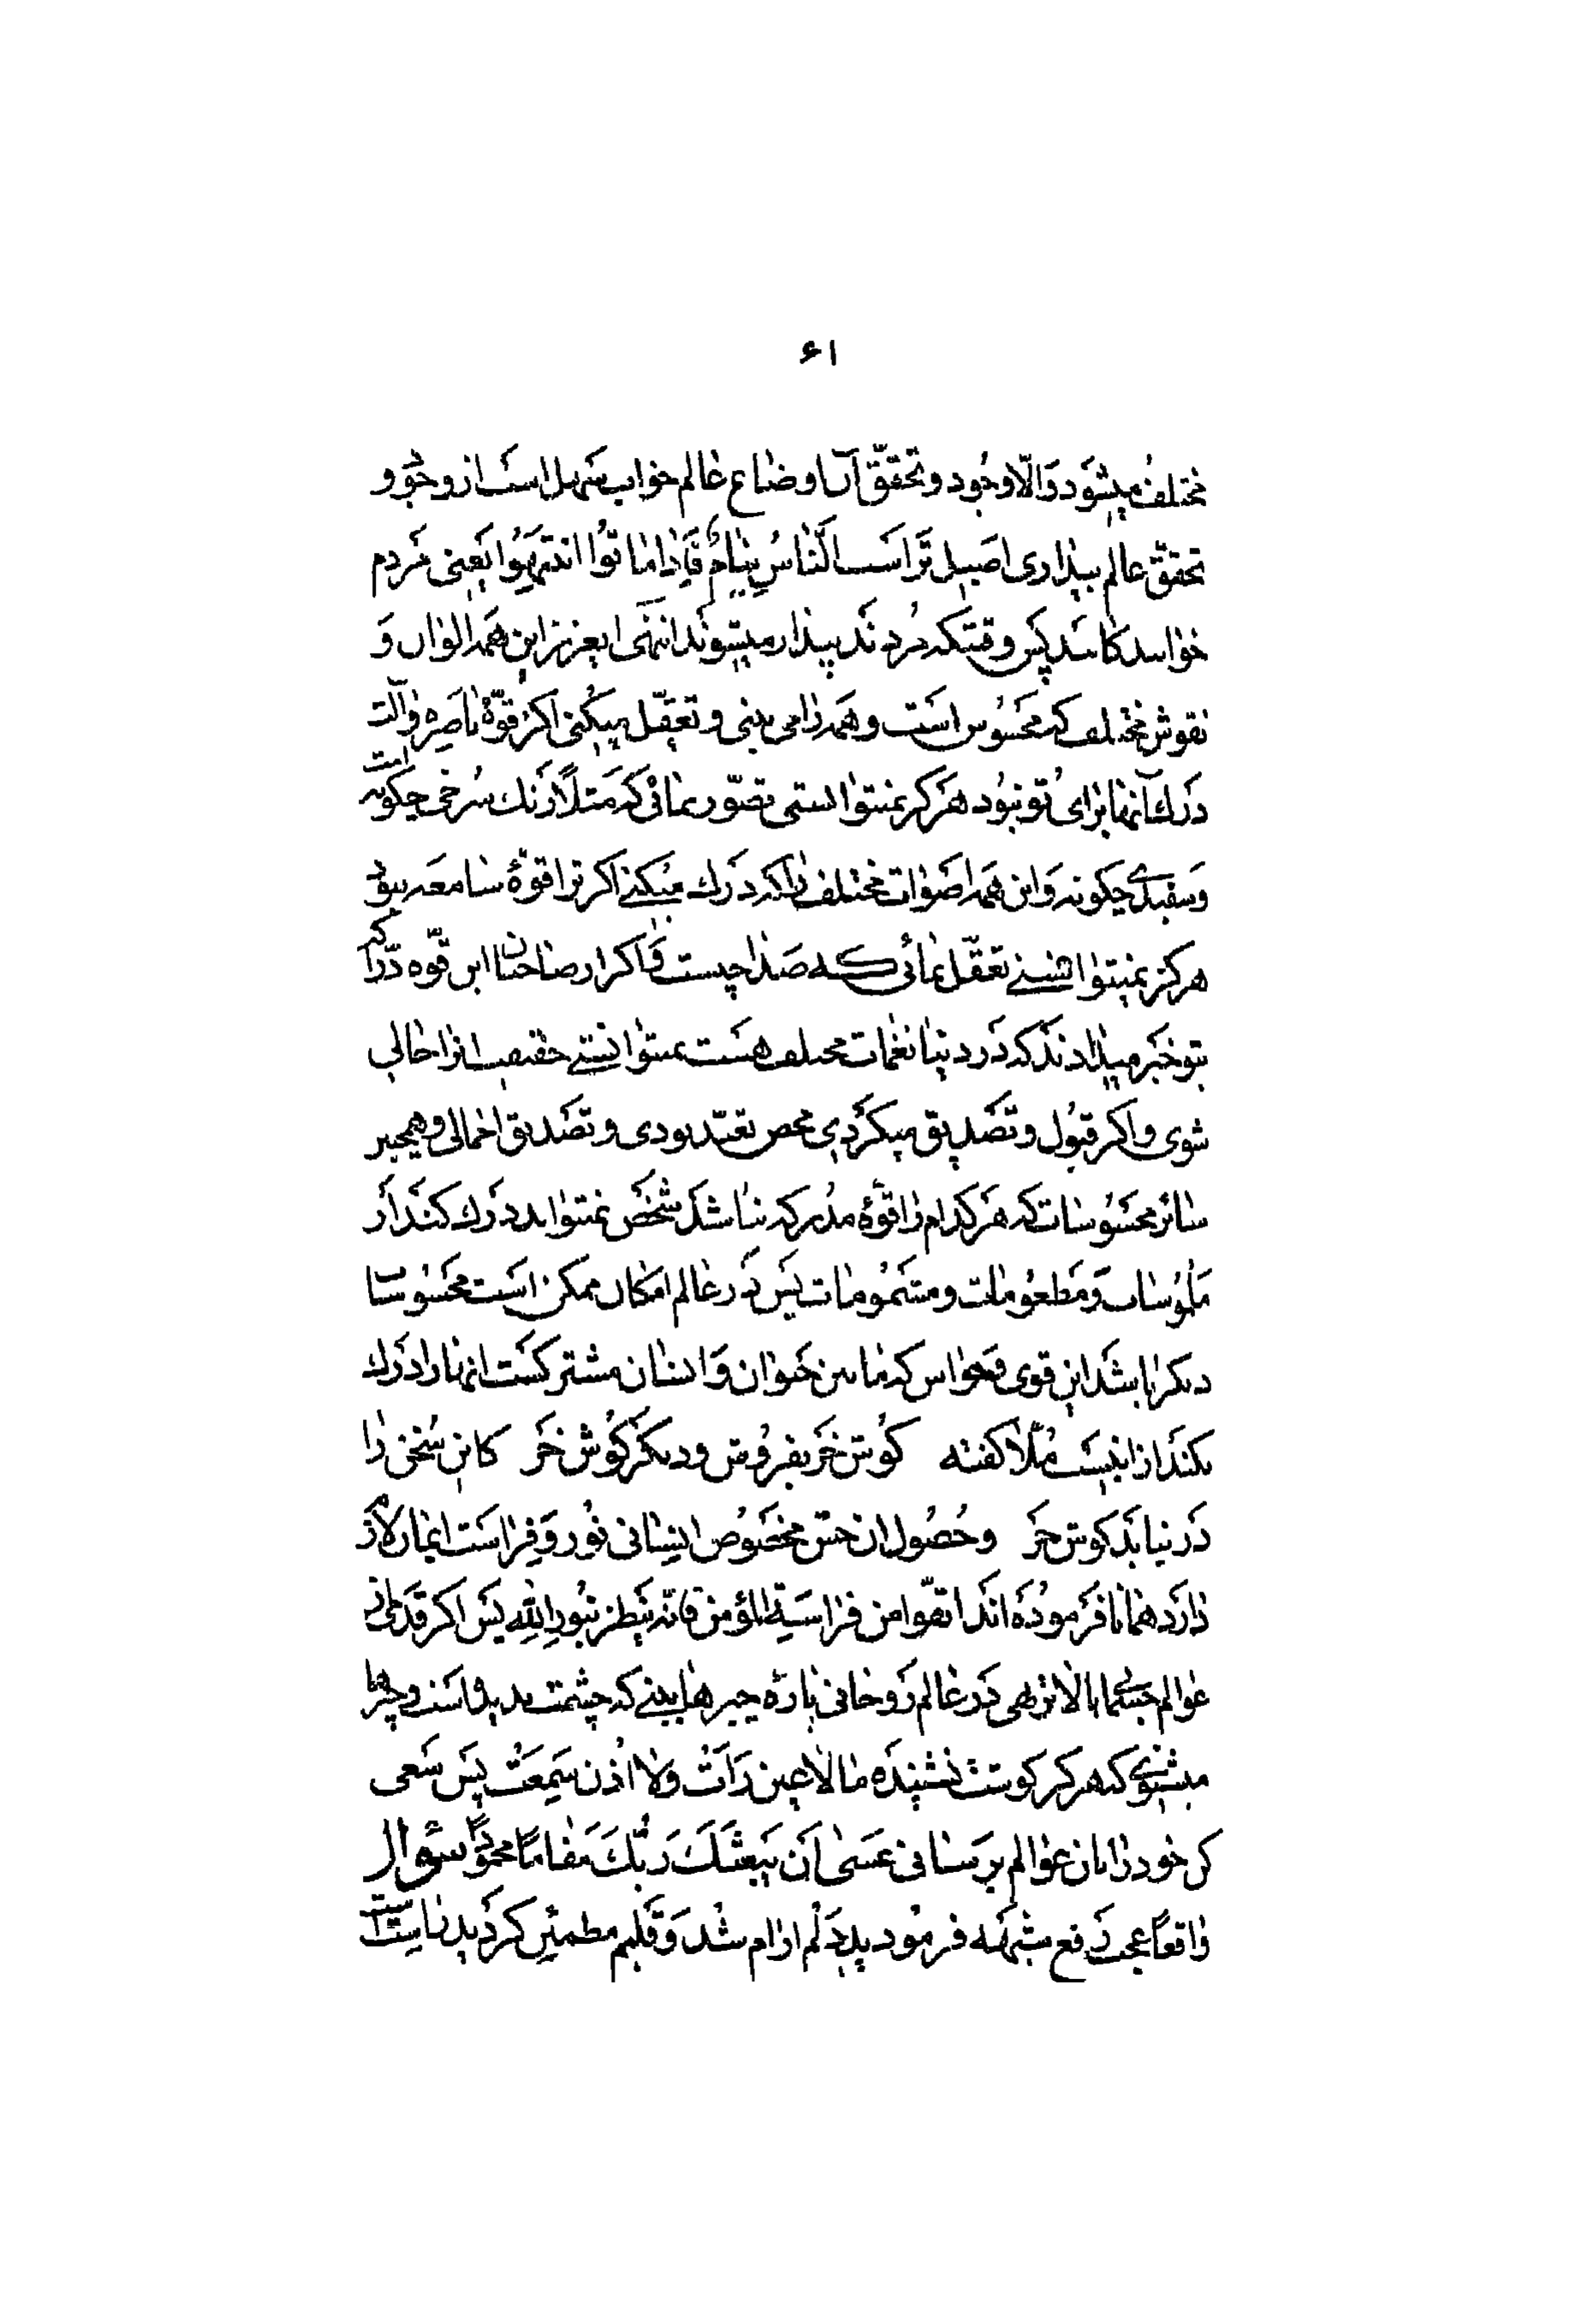 ۶۱
مختلف میشود والّا وجود و تحقّق آن اوضاع عالم خواب سهل است از وجود و
تحقق عالم بیداری اصیل تر است النّاسُ نِیامٌ فَاِذا ماتُوا انتَبَهُوا یعنی مردم
خوابند کانند پس وقتیکه مُردند بیدار میشوند انتهی ایعزیز این همه الوان و
نقوش مختلف که محسوس است و همه را می بینی و تعقّل میکنی اکر قوّهٔ باصره و آلت
درك آنها برای تو نبود هرکز نمیتوانستی تصوّر نمائی که مثلاً رنك سُرخی چکونه است
و سفیدی چکونه و این همه اصوات مختلف را که درك میکنی اکر ترا قوهٔ سامعه نبود
هرکز نمیتوانستی تعقّل نمائی که صدا چیست و اکر صاحبان این قوّه درّاکه
بتو خبر میدادند که در دنیا نغمات مختلف هست نمیتوانستی حقیقت انرا حالی
شوی و اکر قبول و تصدیق میکردی محض تعبّد بودی و تصدیق اجمالی و همچنین
سائر محسوسات که هر کدام را قوّهٔ مدرکه نباشد شخص نمیتواند درك کند از
ملموسات و مطعومات و مشمومات پس در عالم امکان ممکن است محسوسات
دیکر باشد این قوی و حواس که مابین حیوان و انسان مشترکست انها را درك
نکند از اینست مُلّا کفته کوش خر بفروش و دیکر کوش خر کاین سُخن را
در نیابد کوش خر و حُصُول ان حسّ مخصوص انسانی نور و فراست ایمان لازم
دارد همانا فرموده اند اتقوا من فراسة المؤمن فانه ینظر بنور الله پس اکر قدمی از
عوالم جسمی بالاتر نهی در عالم روحانی پاره چیرها بینی که چشمت ندیده است و چیزها
میشنوی که هرکز کوشت نشنیده ما لا عین رَاَتْ وَلا اُذُن سَمِعَتْ پس سَعی
کن خود را بان عوالم برسانی عَسَیٰ اَن یَبعَثَكَ رَبُّكَ مَقاماً محموداً سؤال
واقعاً عجب رفع شبهه فرمودید دلم ارام شد و قلبم مطمئن کردید